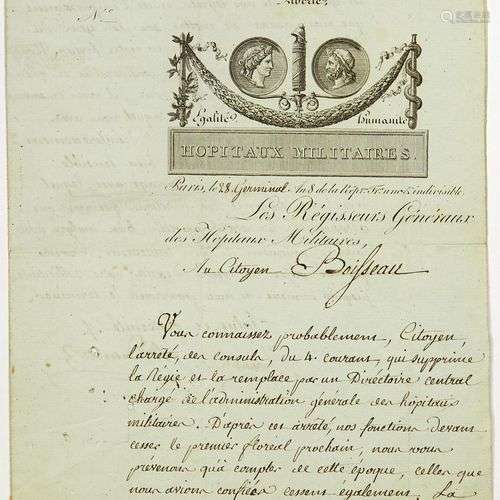 Liberté,
N.º
Egalité Humanité
HOPITAUX MILITAIRES.
Paris, le 28 Germinal An 8 de la Rép. Fr. une & indivisible.
Les Régisseurs Généraux
des Hôpitaux Militaires,
Au Citoyen Boisseau
Vous connaissez probablement, Citoyen,
l'arrêté, des consuls, du 4. courant, qui supprime
la Régie et la remplace par un Directoire central
chargé de l'administration générale des hôpitaux
militaires. D'après ces arrêté, nos fonctions devant
cesser le premier floréal prochain, nous vous
prévenons qu'à compter de cette époque, celles que
nous avions confiées cessent également. Le